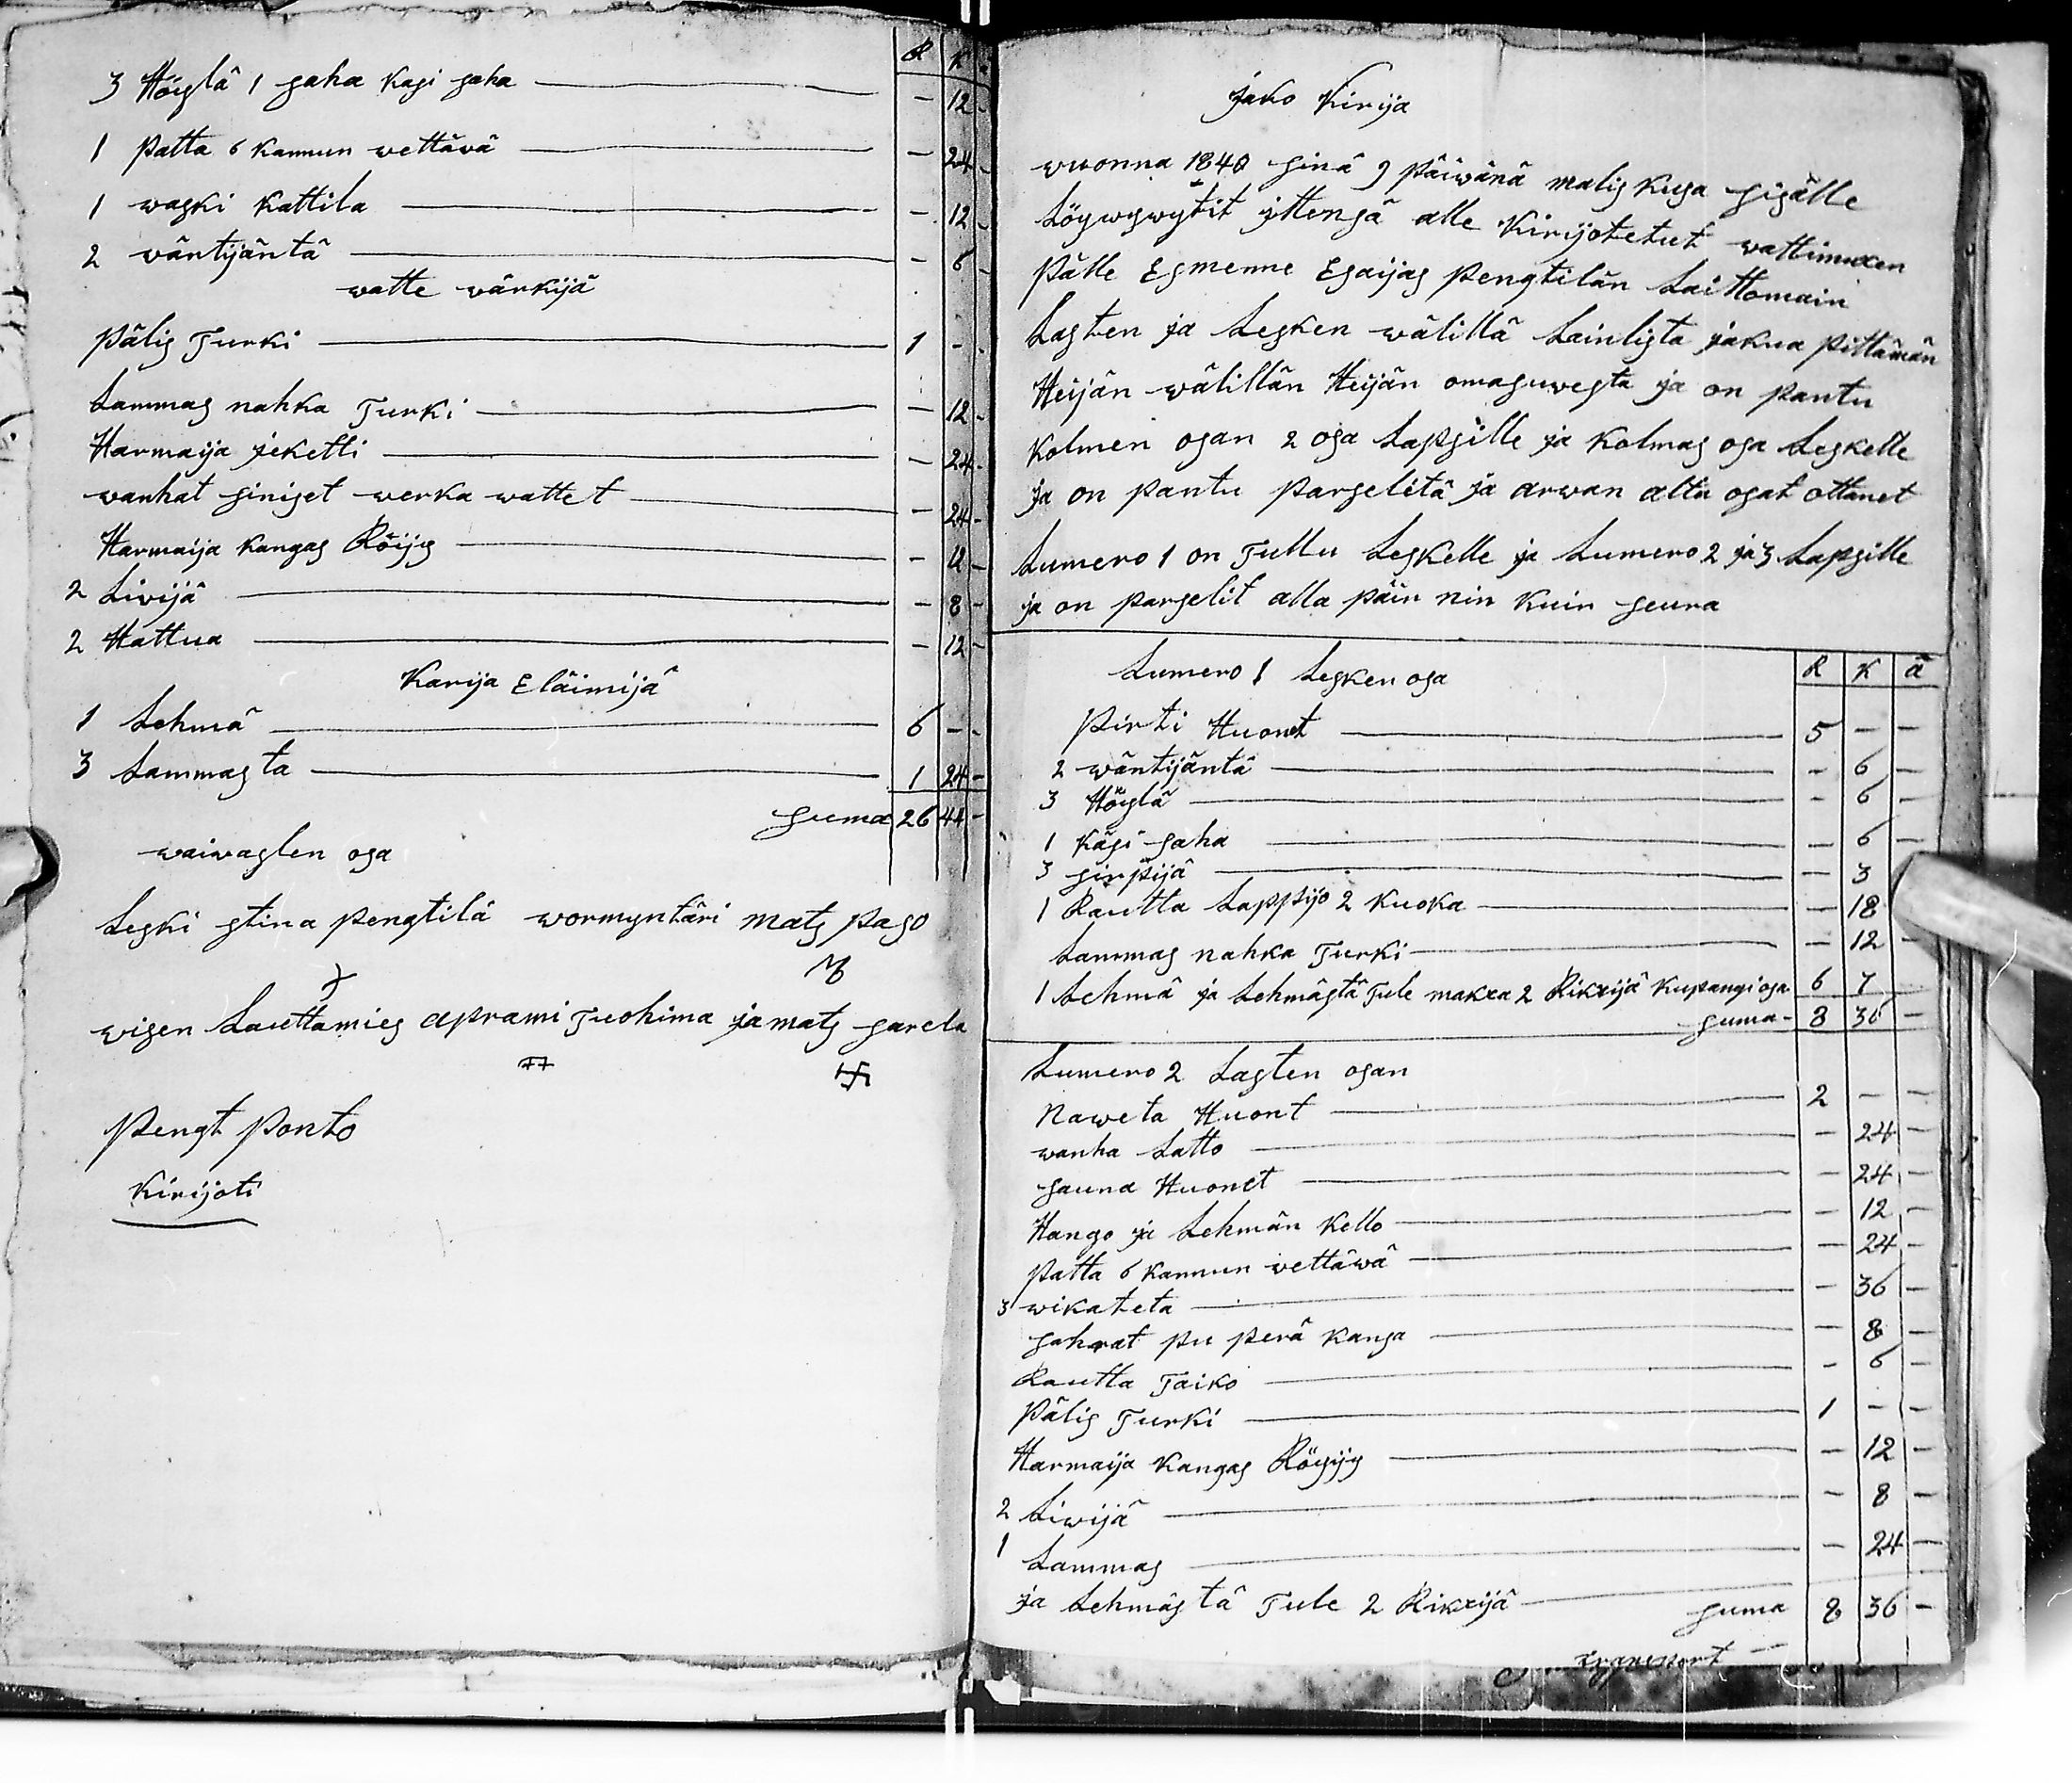 R K
3 Höylä 1 saha Kasi saha — - 12 -
1 patta 6 Kannun wettävä — - 24 -
1 waski Kattila — - 12 -
2 väntijäntä — - 6 -
watte värkijä
pälis Turki — 1 - -
Lammas nahka Turki — - 12 -
Harmaija jeketti — - 24 -
wanhat siniset werka wattet — - 24 -
Harmaija Kangas Röijy — - 12 -
2 Liivijä — - 8 -
2 Hattua — - 12 -
Karija Eläimijä
1 Lehmä — 6 - -
3 Lammasta — 1 24 -
suma 26 44 -
waiwasten osa
Leski stina pengtilä wormyntäri mats paso
wisen Lauttamies aprami Tuohima ja mats sarela
pengt ponto
Kirijoti
jako Kirija
wuonna 1840 sinä 9 päiwänä malis kusa sisälle
Löywyswytit yttensä alle Kirijotetut wattimuxen
pälle Esmenne Esaijas pengtilän Laittomain
Lasten ja Lesken wälillä Lainlista jakua pittämän
Heijän wälillän Heijän omasuwesta ja on pantu
Kolmen osan 2 osa Lapsille ja Kolmas osa Leskelle
ja on pantu parselitä ja arwan altu osat ottanet
Lumero 1 on Tullu Leskelle ja Lumero 2 ja 3 Lapsille
ja on parselit alla päin nin Kuin seura
Lumero 1 Lesken osa R K ä
pirti Huonet — 5 - -
2 wäntijäntä — - 6 -
3 Höylä — - 6 -
1 Käsi saha — - 6 -
3 sirpijä — - 3
1 Rautta Lappijo 2 Kuoka — - 18
Lammas nahka Turki — - 12 -
1 Lehmä ja Lehmästä Tule maxsa 2 Rikxijä Kupangi osa 6 7
suma - 8 36 -
Lumero 2 Lasten osan
Naweta Huont — 2 - -
wanha Latto — - 24 -
sauna Huonet — - 24 -
Hango ja Lehmän Kello — - 12 -
patta 6 Kannun vettäwä — - 24 -
3 wikateta — - 36 -
sahrat pu perä Kansa — - 8 -
Rautta Taiko — - 6 -
pälis Turki — 1 - -
Harmaija Kangas Röyijy — - 12 -
2 Liwijä — - 8 -
1 Lammas — - 24 -
ja Lehmästä Tule 2 Rikxijä — suma 8 36 -